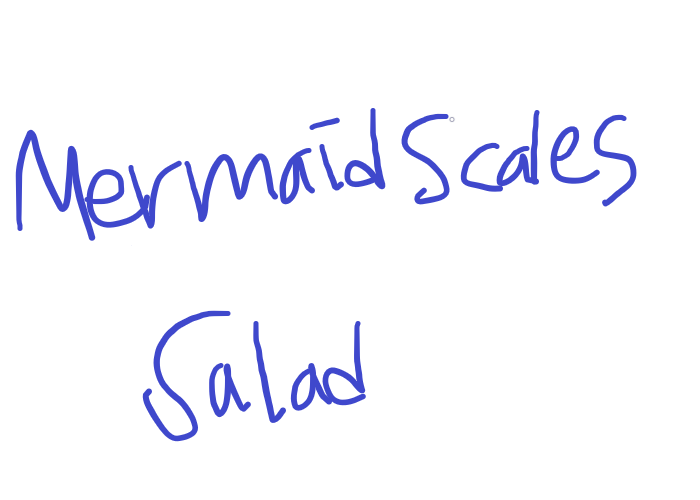 Mermaid Scales
Salad